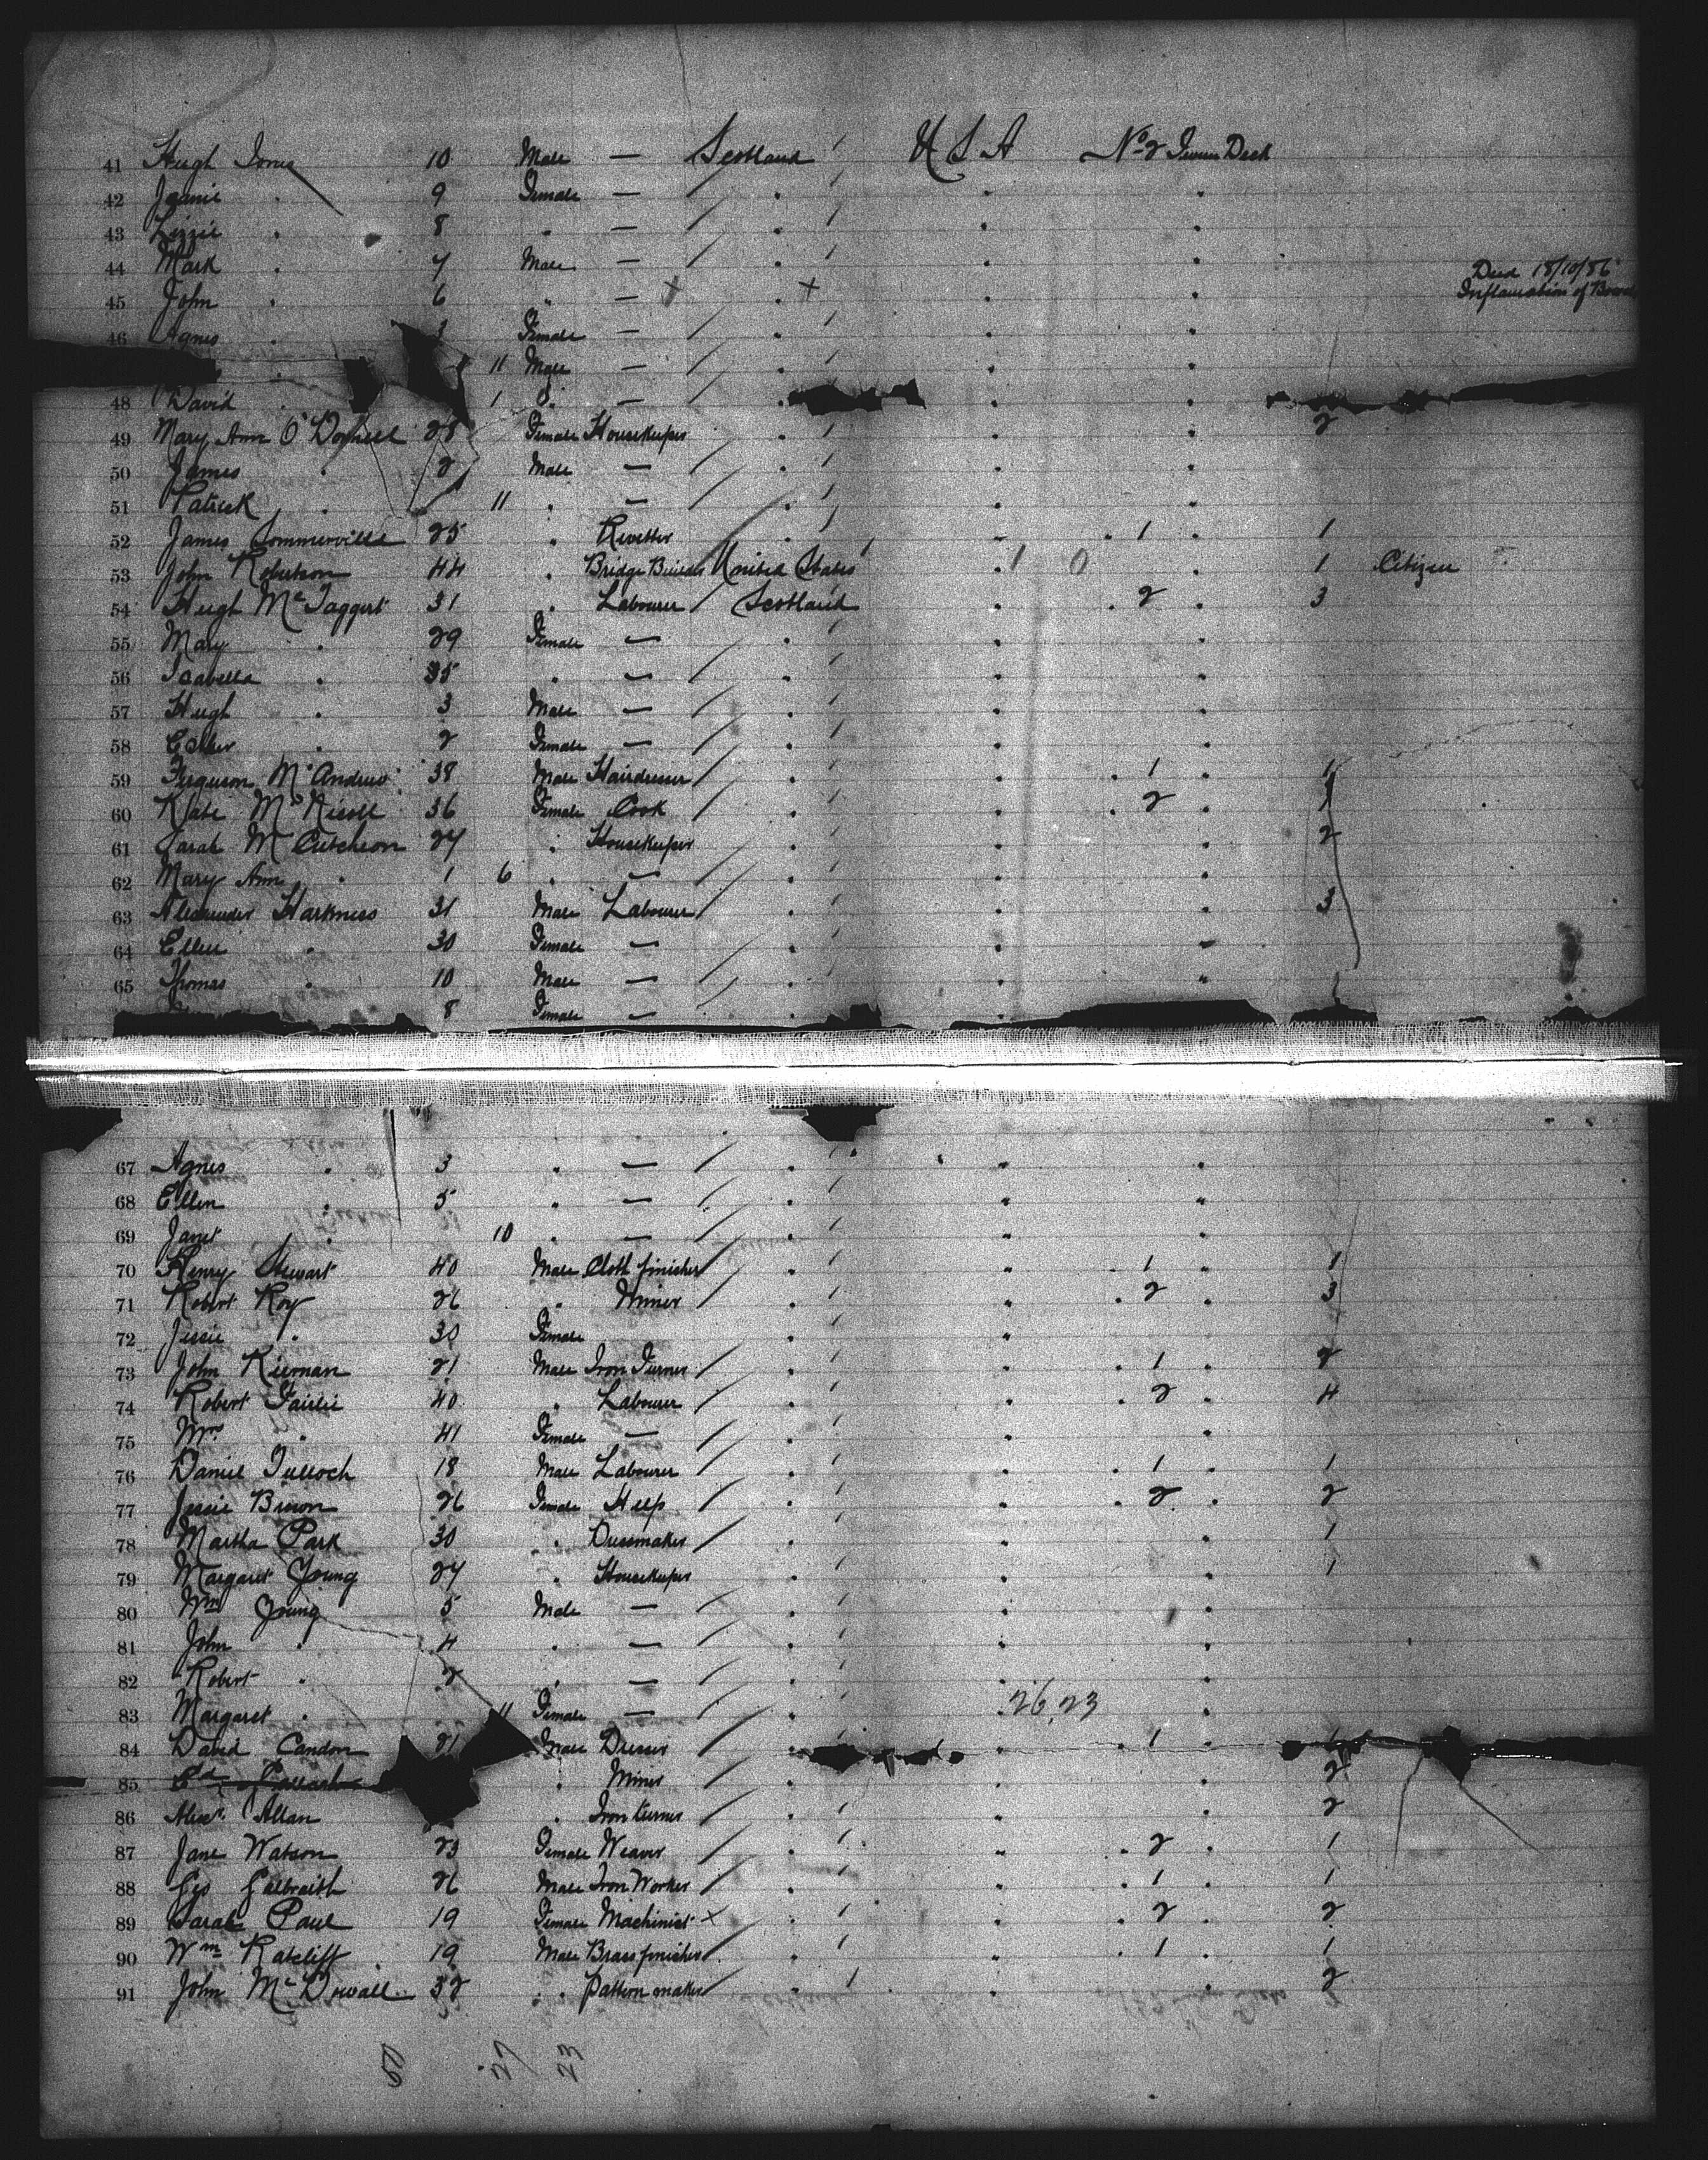 41 Hugh Innes 10 Male — Scotland U S A No 2 Tween Deck
42 Jeanie " 9 Female — " " "
43 Lizzie " 8 " — " " "
44 Mark " 7 Male — " " " Died 18/10/86
45 John " 6 " — " " " Inflamation of
46 Agnes " Female — " " "
" 11 Male — " " "
48 David 1 " — " " "
49 Mary Ann O'Donnell 28 Female Housekeeper " " " 2
50 James " 2 Male — " " "
51 Patrick " 11 " — " " "
52 James Sommerville 25 " Rivetter " " " 1 " 1
53 John Robertson 44 " Bridge Builder United States " 1 0 1 Citizen
54 Hugh McTaggert 31 " Labourer Scotland " " 2 " 3
55 Mary " 29 Female — " " "
56 Isabella " 35 " — " " "
57 Hugh " 3 Male — " " "
58 Esther " 2 Female — " " "
59 Ferguson McAndrew 38 Male Hairdresser " " " 1 " 1
60 Kate McNicoll 36 Female Cook " " " 2 " 1
61 Sarah McCutcheon 27 " Housekeeper " " " 2
62 Mary Ann " 1 6 " — " " "
63 Alexander Harkness 31 Male Labourer " " " 3
64 Ellen " 30 Female — " " "
65 Thomas " 10 Male — " " "
8 Female — "
67 Agnes " 3 " — " " "
68 Ellen " 5 " — " " "
69 Janet " 10 " — " " "
70 Henry Stewart 40 Male Cloth finisher " " " 1 " 1
71 Robert Roy 26 " Miner " " " 2 " 3
72 Jessie " 30 Female " " "
73 John Kiernan 21 Male Iron Turner " " " 1 " 2
74 Robert Fairlie 40 " Labourer " " " 2 " 4
75 Mrs " 41 Female — " " "
76 Daniel Tulloch 18 Male Labourer " " " 1 " 1
77 Jessie Brown 26 Female Help " " " 2 " 2
78 Martha Park 30 " Dressmaker " " " 1
79 Margaret Young 27 " Housekeeper " " " 1
80 Wm Young 5 Male — " " "
81 John " 4 " — " " "
82 Robert " 2 " — " " "
83 Margaret " 11 Female — " " 26,23 "
84 David Condon 21 Male Dresser " " " 1 " 1
85 " Miner " 2
86 Alexr Allan " Iron turner " " " 2
87 Jane Watson 23 Female Weaver " " " 2 " 1
88 Geo Galbraith 26 Male Iron Worker " " " 1 " 1
89 Sarah Paul 19 Female Machinist " " " 2 " 2
90 Wm Ratcliff 19 Male Brass finisher " " " 1 " 1
91 John McDowall 32 " Pattern maker " " " 2
27 23